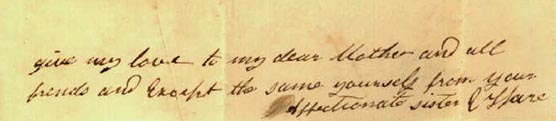 give my love to my dear Mother and all
frends and Except the same yourself from your
Affectionate sister E